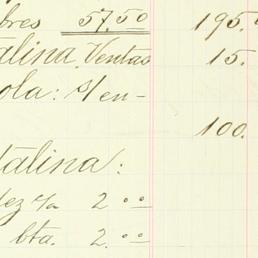 bres 57.50 195.
alina Ventas 15.
ola: s/en-
100.
talina:
dez c/a 2.00
bta. 2.00